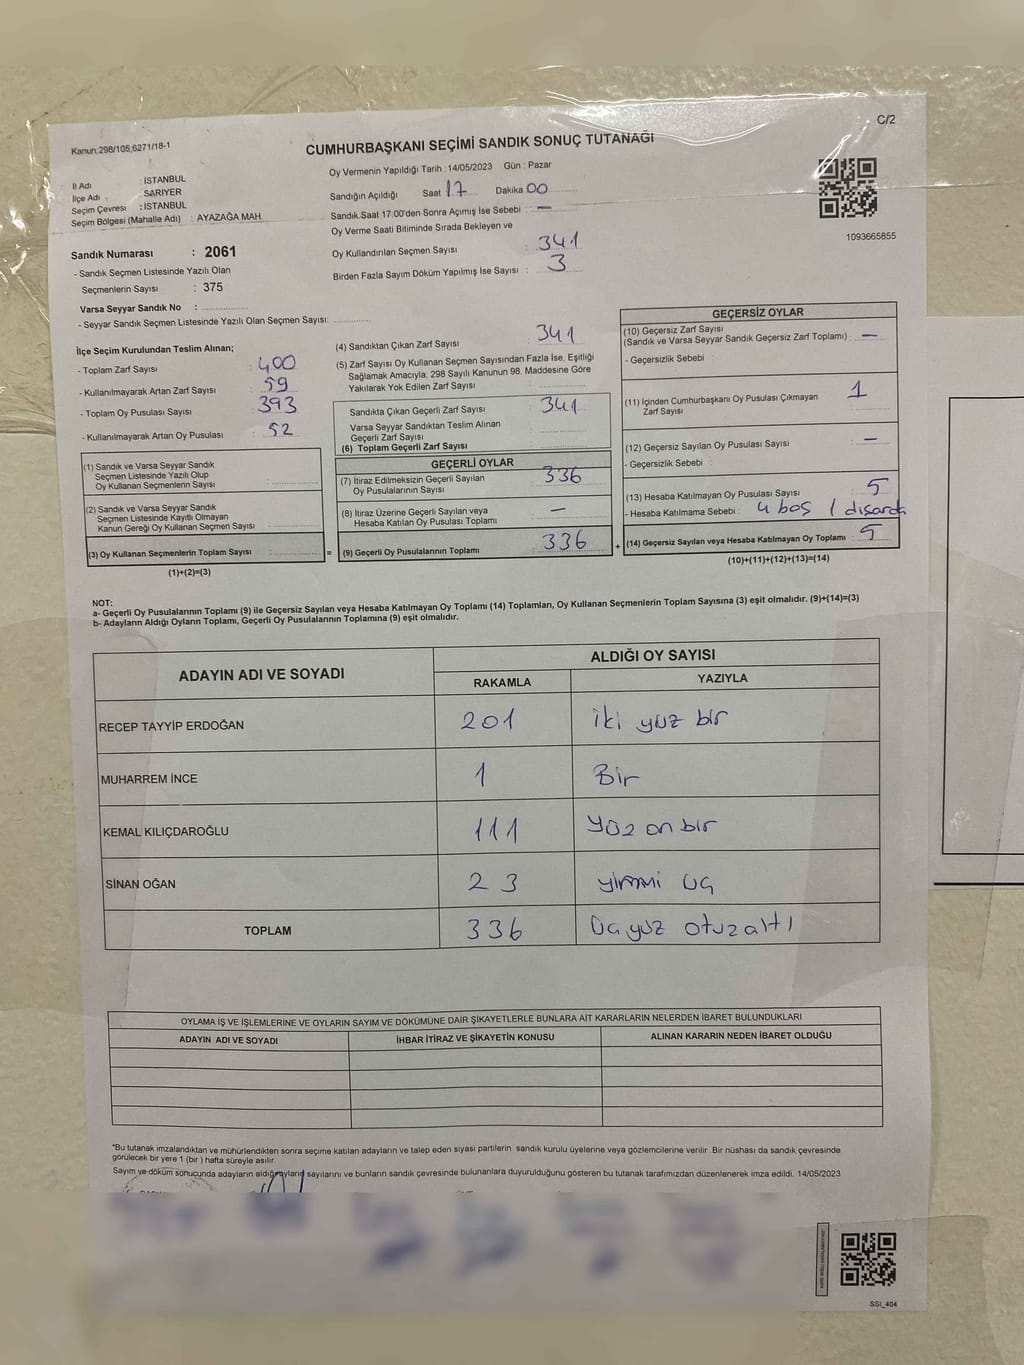 C/2
Kanun:298/105,6271/18-1
CUMHURBAŞKANI SEÇİMİ SANDIK SONUÇ TUTANAĞI
Oy Vermenin Yapıldığı Tarih : 14/05/2023 Gün : Pazar
İl Adı : İSTANBUL
İlçe Adı : SARIYER
Seçim Çevresi : İSTANBUL
Seçim Bölgesi (Mahalle Adı) : AYAZAĞA MAH.
Sandığın Açıldığı Saat 17 Dakika 00
Sandık Saat 17:00'den Sonra Açımış İse Sebebi : —
Oy Verme Saati Bitiminde Sırada Bekleyen ve
Oy Kullandırılan Seçmen Sayısı : 341
Birden Fazla Sayım Döküm Yapılmış İse Sayısı : 3
1093665855
Sandık Numarası : 2061
- Sandık Seçmen Listesinde Yazılı Olan
Seçmenlerin Sayısı : 375
Varsa Seyyar Sandık No :
- Seyyar Sandık Seçmen Listesinde Yazılı Olan Seçmen Sayısı:
İlçe Seçim Kurulundan Teslim Alınan;
- Toplam Zarf Sayısı : 400
- Kullanılmayarak Artan Zarf Sayısı : 59
- Toplam Oy Pusulası Sayısı : 393
- Kullanılmayarak Artan Oy Pusulası : 52
(1) Sandık ve Varsa Seyyar Sandık
Seçmen Listesinde Yazılı Olup
Oy Kullanan Seçmenlerin Sayısı :
(2) Sandık ve Varsa Seyyar Sandık
Seçmen Listesinde Kayıtlı Olmayan
Kanun Gereği Oy Kullanan Seçmen Sayısı :
(3) Oy Kullanan Seçmenlerin Toplam Sayısı :
(1)+(2)=(3)
(4) Sandıktan Çıkan Zarf Sayısı : 341
(5) Zarf Sayısı Oy Kullanan Seçmen Sayısından Fazla İse, Eşitliği
Sağlamak Amacıyla, 298 Sayılı Kanunun 98. Maddesine Göre
Yakılarak Yok Edilen Zarf Sayısı :
Sandıkta Çıkan Geçerli Zarf Sayısı : 341
Varsa Seyyar Sandıktan Teslim Alınan
Geçerli Zarf Sayısı :
(6) Toplam Geçerli Zarf Sayısı :
GEÇERLİ OYLAR
(7) İtiraz Edilmeksizin Geçerli Sayılan
Oy Pusulalarının Sayısı : 336
(8) İtiraz Üzerine Geçerli Sayılan veya
Hesaba Katılan Oy Pusulası Toplamı : —
= (9) Geçerli Oy Pusulalarının Toplamı : 336
GEÇERSİZ OYLAR
(10) Geçersiz Zarf Sayısı
(Sandık ve Varsa Seyyar Sandık Geçersiz Zarf Toplamı) : —
- Geçersizlik Sebebi :
(11) İçinden Cumhurbaşkanı Oy Pusulası Çıkmayan
Zarf Sayısı : 1
(12) Geçersiz Sayılan Oy Pusulası Sayısı : —
- Geçersizlik Sebebi :
(13) Hesaba Katılmayan Oy Pusulası Sayısı : 5
- Hesaba Katılmama Sebebi : 4 boş 1 dısarda
+ (14) Geçersiz Sayılan veya Hesaba Katılmayan Oy Toplamı : 5
(10)+(11)+(12)+(13)=(14)
NOT:
a- Geçerli Oy Pusulalarının Toplamı (9) ile Geçersiz Sayılan veya Hesaba Katılmayan Oy Toplamı (14) Toplamları, Oy Kullanan Seçmenlerin Toplam Sayısına (3) eşit olmalıdır. (9)+(14)=(3)
b- Adayların Aldığı Oyların Toplamı, Geçerli Oy Pusulalarının Toplamına (9) eşit olmalıdır.
ADAYIN ADI VE SOYADI ALDIĞI OY SAYISI
RAKAMLA YAZIYLA
RECEP TAYYİP ERDOĞAN 201 iki yüz bir
MUHARREM İNCE 1 Bir
KEMAL KILIÇDAROĞLU 111 Yüz on bir
SİNAN OĞAN 23 yirmi üç
TOPLAM 336 Üç yüz otuz altı
OYLAMA İŞ VE İŞLEMLERİNE VE OYLARIN SAYIM VE DÖKÜMÜNE DAİR ŞİKAYETLERLE BUNLARA AİT KARARLARIN NELERDEN İBARET BULUNDUKLARI
ADAYIN ADI VE SOYADI İHBAR İTİRAZ VE ŞİKAYETİN KONUSU ALINAN KARARIN NEDEN İBARET OLDUĞU
*Bu tutanak imzalandıktan ve mühürlendikten sonra seçime katılan adayların ve talep eden siyasi partilerin sandık kurulu üyelerine veya gözlemcilerine verilir. Bir nüshası da sandık çevresinde
görülecek bir yere 1 (bir ) hafta süreyle asılır.
Sayım ve döküm sonucunda adayların aldığı oyların sayılarını ve bunların sandık çevresinde bulunanlara duyurulduğunu gösteren bu tutanak tarafımızdan düzenlenerek imza edildi. 14/05/2023
SSİ_404